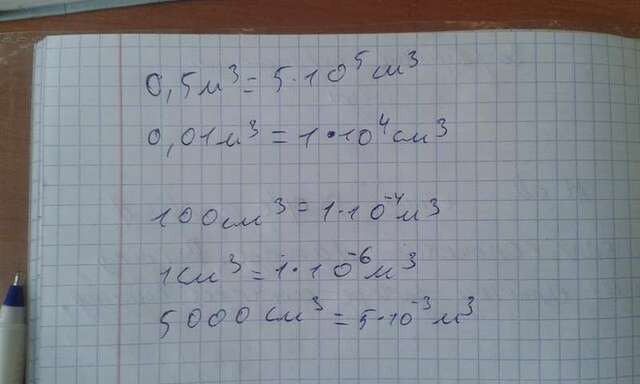 0,5м³ = 5·10⁵ см³
0,01м³ = 1·10⁴ см³
100см³ = 1·10⁻⁴ м³
1см³ = 1·10⁻⁶ м³
5000 см³ = 5·10⁻³ м³